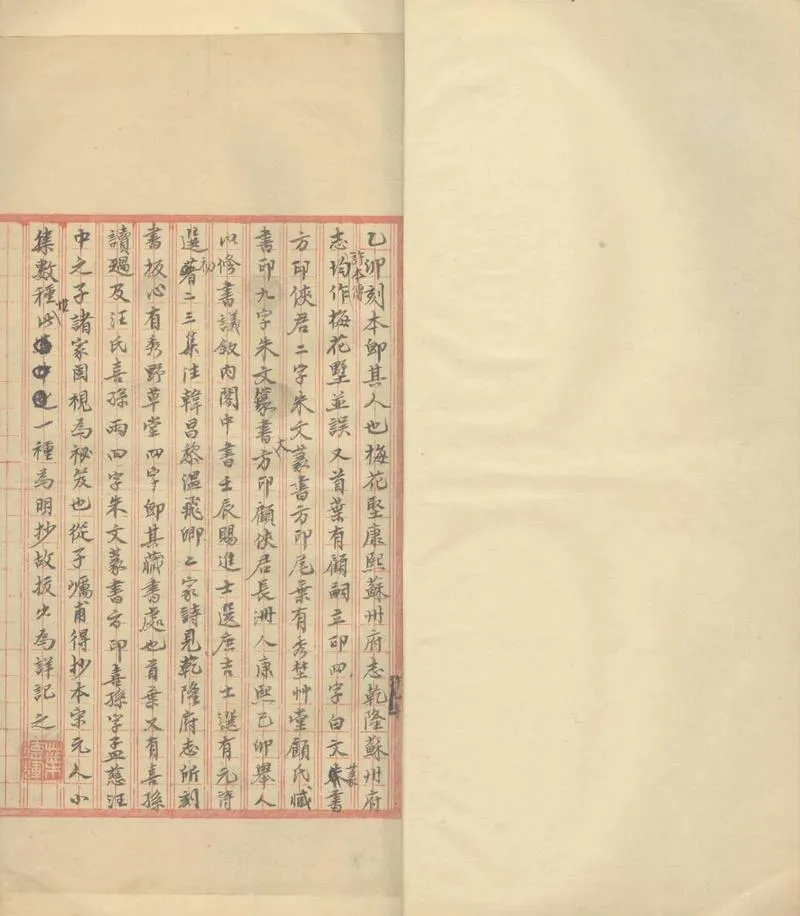 乙卯刻本即其人也梅花墅康熙蘇州府志乾隆蘇州府
志許本傳均作梅花墅並誤又首葉有顧嗣立印四字白文篆書
方印俠君二字朱文篆書方印尾葉有秀埜艸堂顧氏臧
書印九字朱文篆書大方印顧俠君長洲人康熙己卯舉人
以修書議敘內閣中書壬辰賜進士選庶吉士選有元詩
選初二三集注韓昌黎溫飛卿二家詩見乾隆府志所刻
書板心有秀野草堂四字即其藏書處也首葉又有喜孫
讀過及汪氏喜孫兩四字朱文篆書方印喜孫字孟慈汪
中之子諸家罔視為祕笈也從子囑甫得抄本宋元人小
集數種惟此一種為明抄故扳中為詳記之
葉